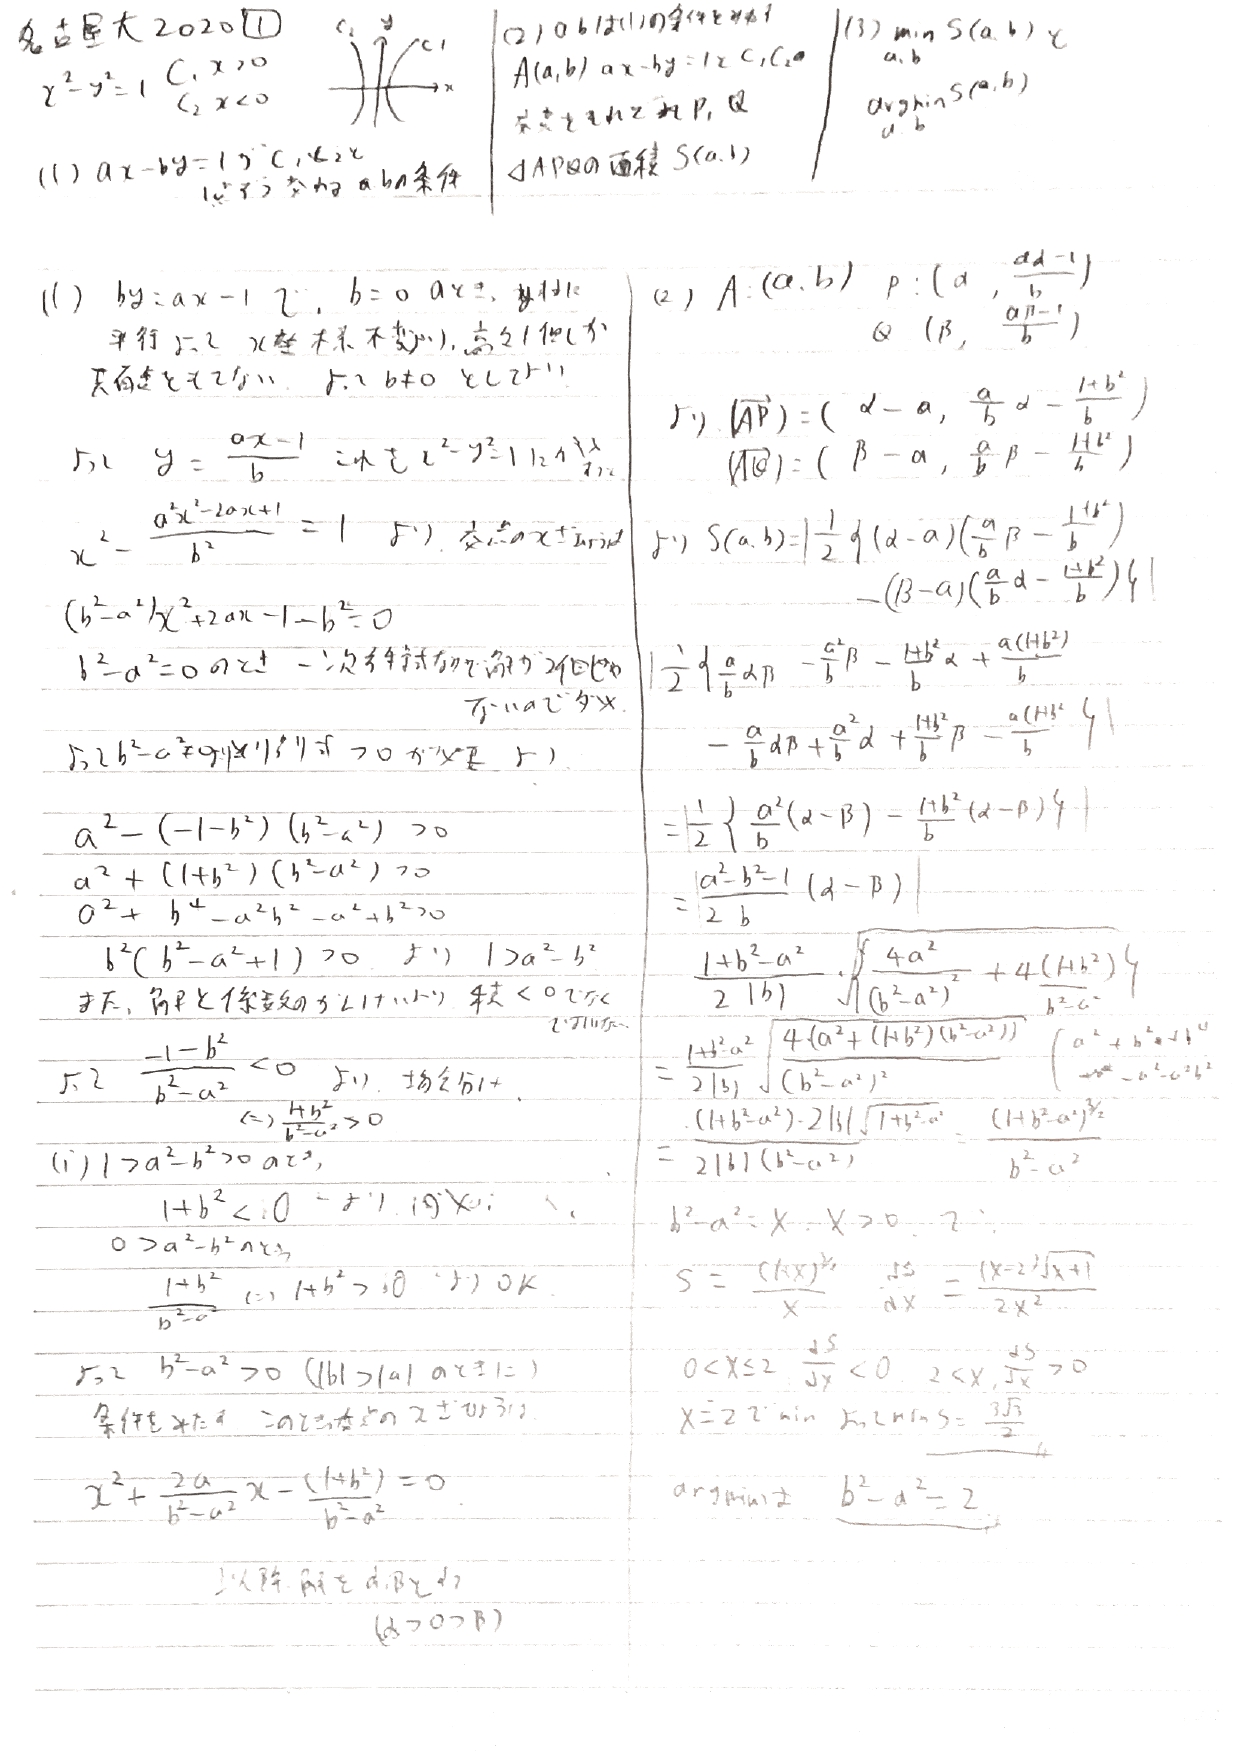 名古屋大2020 1
x²-y²=1 C₁ x>0
C₂ x<0
C₂ y C₁
x
(1) ax-by=1が C₁, C₂と
1点ずつ交わる a bの条件
(2) a bは(1)の条件をみたす
A(a,b) ax-by=1と C₁C₂の
交点をそれぞれ P, Q
△APQの面積 S(a,b)
(3) min S(a,b) と
a,b
argmin S(a,b)
a,b
(1) by=ax-1 で, b=0 のとき, y軸に
平行 よって x座標不変より, 高々1個しか
共有点をもてない. よって b≠0 としてよい
よって y = (ax-1)/b これを x²-y²=1に代入
して
x² - (a²x²-2ax+1)/b² = 1 より 交点のx座標は
(b²-a²)x²+2ax-1-b²=0
b²-a²=0 のとき 一次方程式なので解が2個出
ないのでダメ.
よって b²-a²≠0 判別式 >0 が必要 より
a²-(-1-b²)(b²-a²) >0
a²+(1+b²)(b²-a²) >0
a²+ b⁴-a²b²-a²+b²>0
b²(b²-a²+1) >0 より 1>a²-b²
また, 解と係数のかんけいより 積<0でなく
てはいけない.
よって (-1-b²)/(b²-a²) <0 より 場合分け
⇔ (1+b²)/(b²-a²) >0
(i) 1>a²-b²>0 のとき,
1+b²<0 より
0>a²-b²のとき
(1+b²)/(b²-a²) ⇔ 1+b²>0 より OK
よって b²-a²>0 (|b|>|a| のときに)
条件をみたす このとき交点の x座標は
x²+ 2a/(b²-a²) x - (1+b²)/(b²-a²) =0
以降 解を α,βとする
(α>0>β)
(2) A:(a,b) P:(α, (aα-1)/b)
Q (β, (aβ-1)/b)
より (AP→)=( α-a, a/b α - (1+b²)/b )
(AQ→)=( β-a, a/b β - (1+b²)/b )
より S(a,b)=|1/2 {(α-a)(a/b β - (1+b²)/b)
-(β-a)(a/b α - (1+b²)/b)}|
|1/2 {a/b αβ - a²/b β - (1+b²)/b α + a(1+b²)/b
- a/b αβ + a²/b α + (1+b²)/b β - a(1+b²)/b }|
=|1/2 { a²/b (α-β) - (1+b²)/b (α-β)}|
=|(a²-b²-1)/2b (α-β)|
(1+b²-a²)/2|b| · √{4a²/(b²-a²)² + 4(1+b²)/(b²-a²)}
= (1+b²-a²)/2|b| √(4(a²+(1+b²)(b²-a²))/(b²-a²)²) ( a²+b²+b⁴
-a²-a²b²
= (1+b²-a²)·2|b|√(1+b²-a²) / 2|b|(b²-a²) = (1+b²-a²)^(3/2) / (b²-a²)
b²-a²=X. X>0 で
S = (1+X)^(3/2)/X dS/dX = (X-2)√(X+1)/2X²
0<X≤2 dS/dX <0 2<X, dS/dX >0
X=2で min よって min S= 3√3/2
argminは b²-a²=2